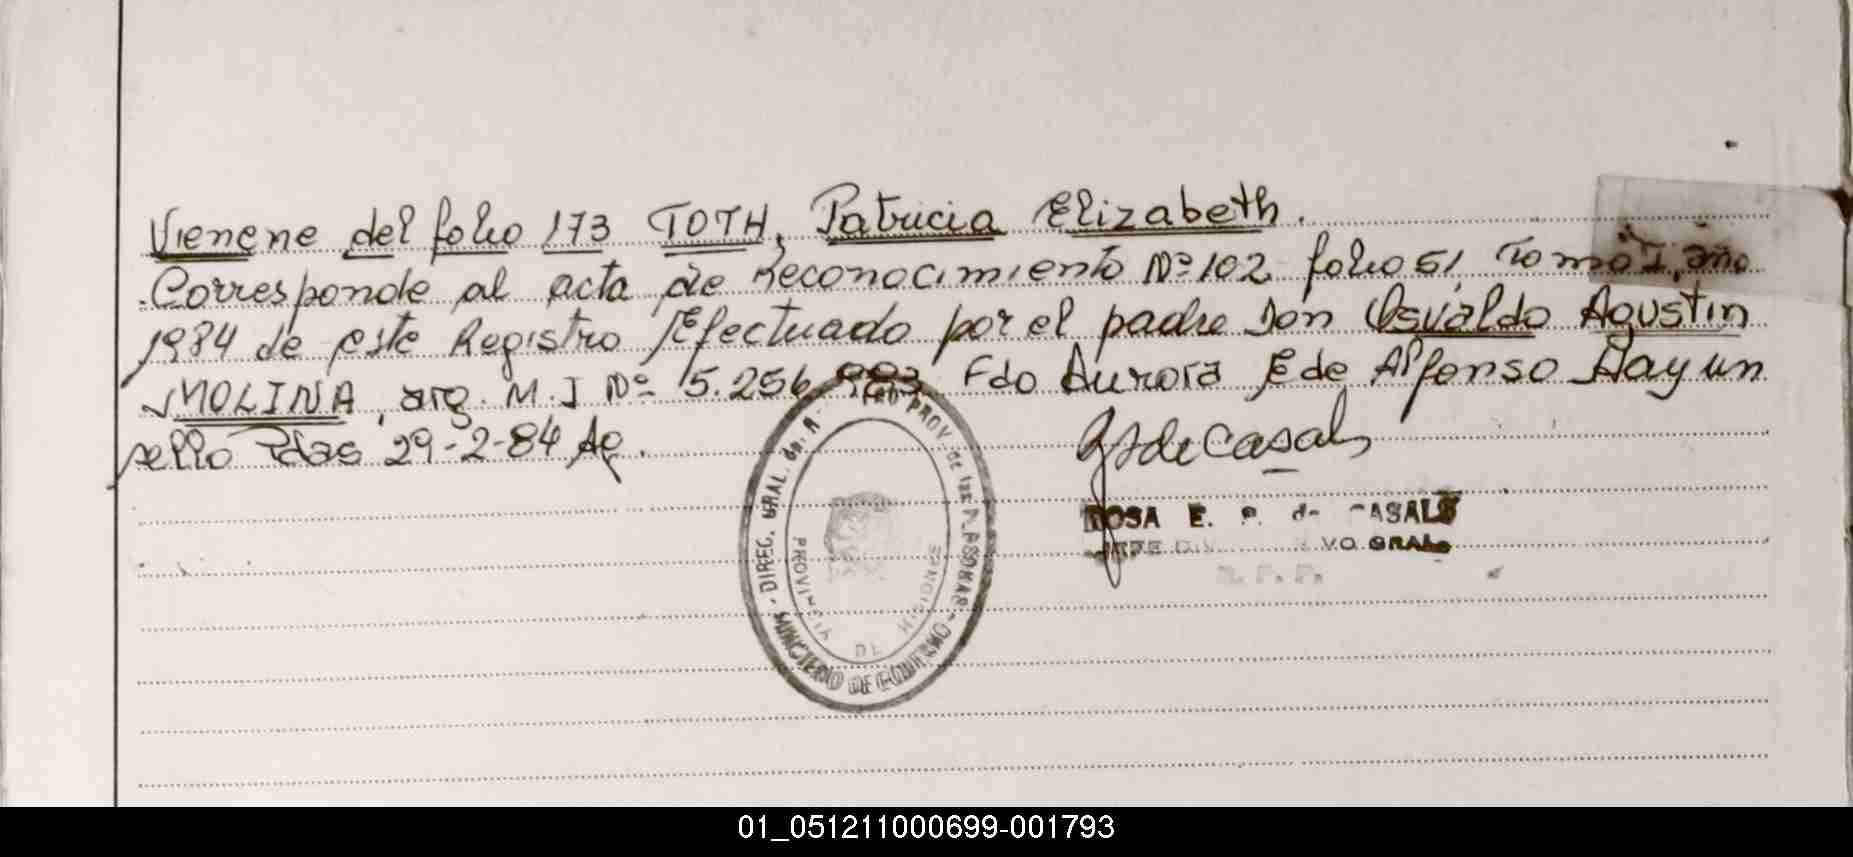 Vienene del folio 173 TOTH, Patricia Elizabeth.
Corresponde al acta de Reconocimiento Nº 102 folio 51 Tomo I, año
1984 de este Registro Efectuado por el padre Don Osvaldo Agustin
MOLINA, arg. M.I Nº 5.256.993 Fdo Aurora E de Alfonso Hay un
sello Pdas 29-2-84 Ag.
DIREC. GRAL. del REG. PROV. de las PERSONAS
MINISTERIO DE GOBIERNO
PROVINCIA DE MISIONES
R de Casals
ROSA E. P. de CASALS
JEFE DIV. VO GRAL.
R. P. P.
01_051211000699-001793